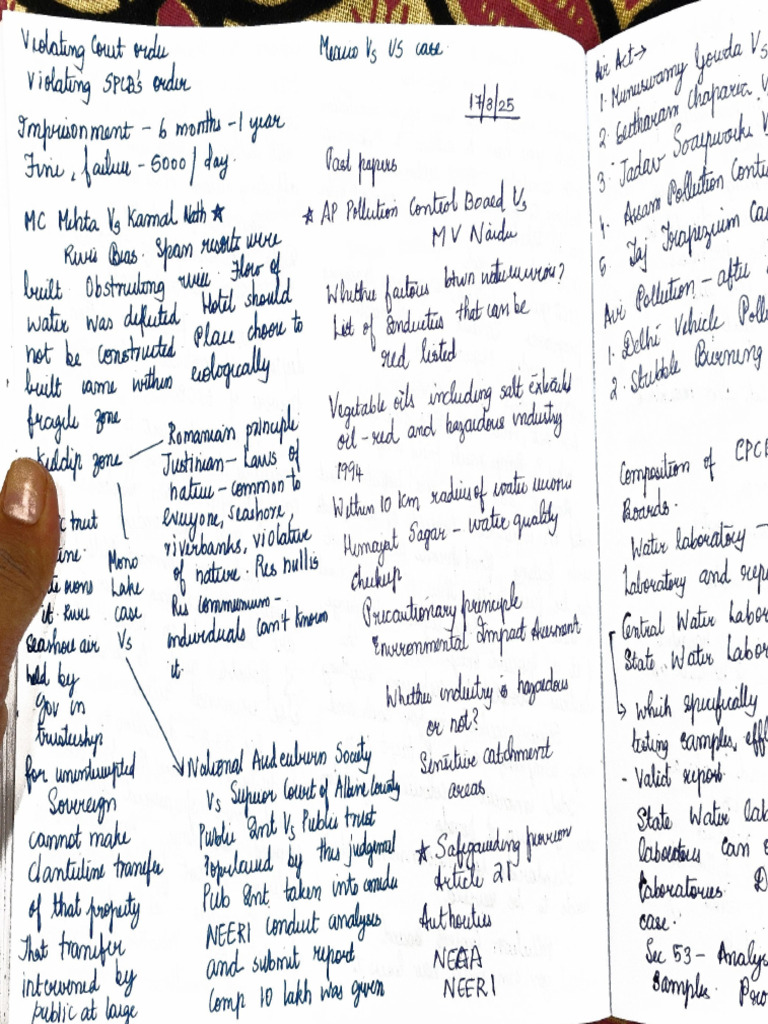 Violating Court order
Violating SPCB's order
Imprisonment - 6 months - 1 year
Fine, failure - 5000/day.
MC Mehta Vs Kamal Nath ★
River Beas. Span resorts were
built Obstructing river. Flow of
water was deflected Hotel should
not be constructed Place choose to
built came within ecologically
fragile zone
zone
trust
Mono
Lake
case
Vs
seashore air
held by
Gov in
trusteeship
for uninterrupted
Sovereign
cannot make
clantuline transfer
of that property
That transfer
intervened by
public at large
Romanian principle
Justinian - Laws of
nature - common to
everyone, seashore,
riverbanks, violative
of nature. Res nullis
Res communum -
individuals can't known
it
National Audeuburn Society
Vs Superior Court of Albine County
Public Int Vs Public trust
Popularued by this judgemal
Pub Int. taken into
NEERI conduct analyses
and submit report
Comp 10 lakh was given
Mexico Vs US case.
17/8/25
Past papers
★ AP Pollution Control Board Vs
MV Naidu
Whether factories btwn
List of Industries that can be
red listed
Vegetable oils including salt extracts
oil - red and hazardous industry
1994
Within 10 km radius of water
Himayat Sagar - water quality
checkup
Precautionary principle
Environmental Impact
Whether industry is hazardous
or not?
Sensitive catchment
areas
★ Safeguarding
Article 21
Authorities
NEAA
NEERI
Air Act →
1. Munuswamy Gowda Vs
2. Geetharam Chaparia
3. Jadav Soapworks V
4. Assam Pollution Cont
5. Taj Trapezium Ca
Air Pollution - after
1. Delhi Vehicle Poll
2. Stubble Burning
Composition of CPCB
Boards.
Water laboratory -
Laboratory and rep
Central Water Labor
State Water Labor
↳ Which specifically
testing samples, effl
- Valid report.
State Water lab
laboratories can
laboratories.
case.
Sec 53 - Analys
Samples.